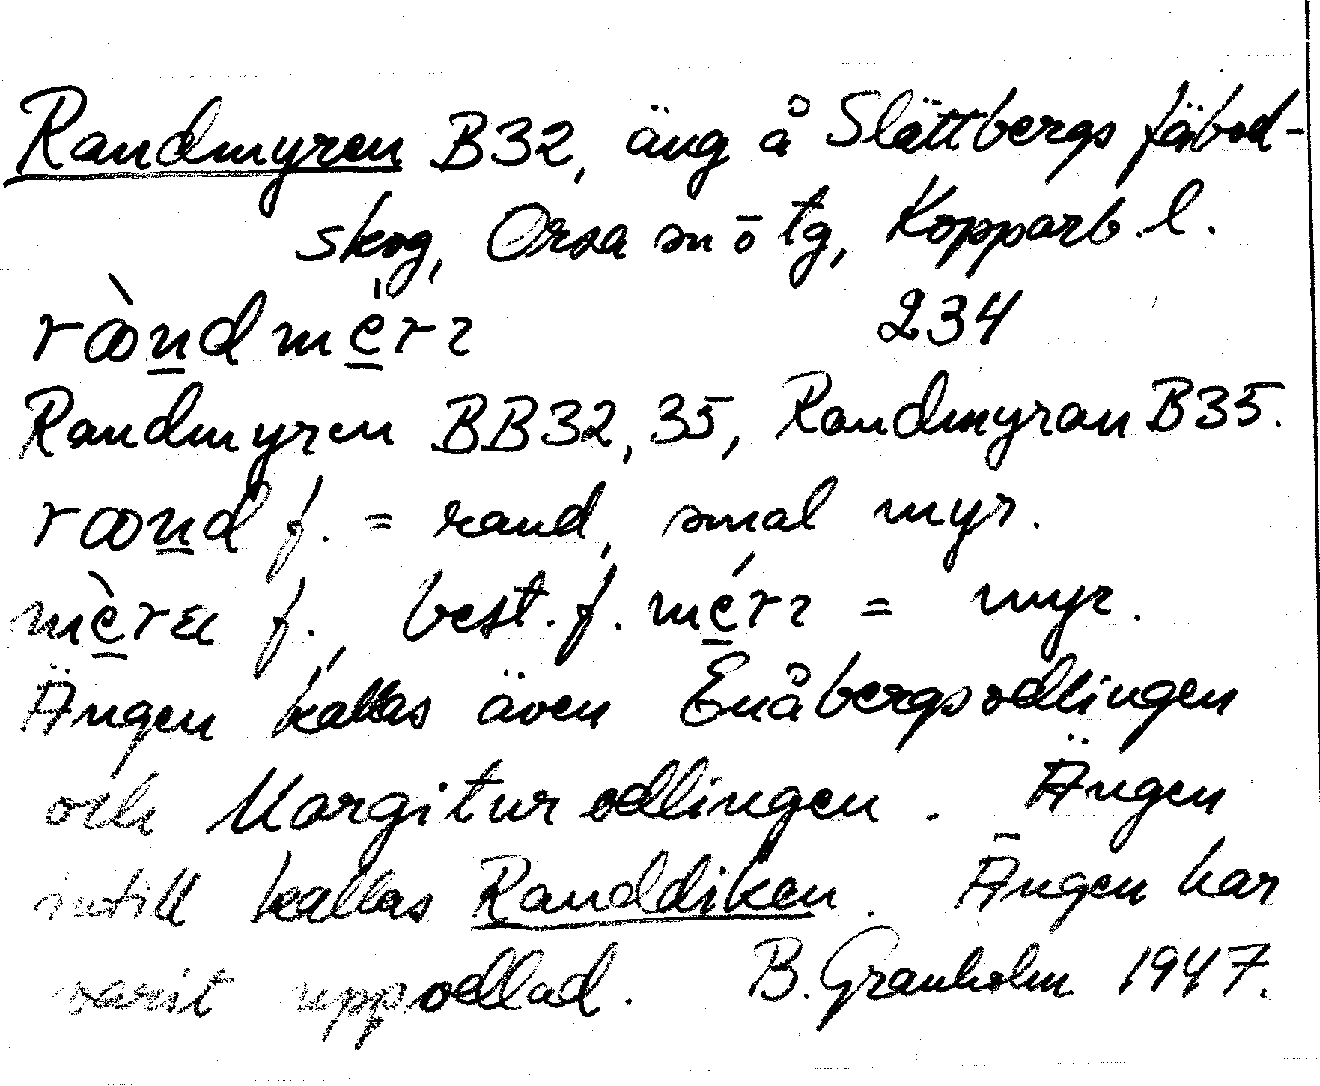 Randmyren B32, äng å Slättbergs fäbod-
skog, Orsa sn ō tg, Kopparb. l.
234
Randmyren BB32, 35, Randmyran B35.
f. = rand, smal myr.
f., best. f. = myr.
Ängen kallas även Enåbergsodlingen
och Margiturodlingen. Ängen
intill kallas Randdiken. Ängen har
varit uppodlad. B. Granholm 1947.